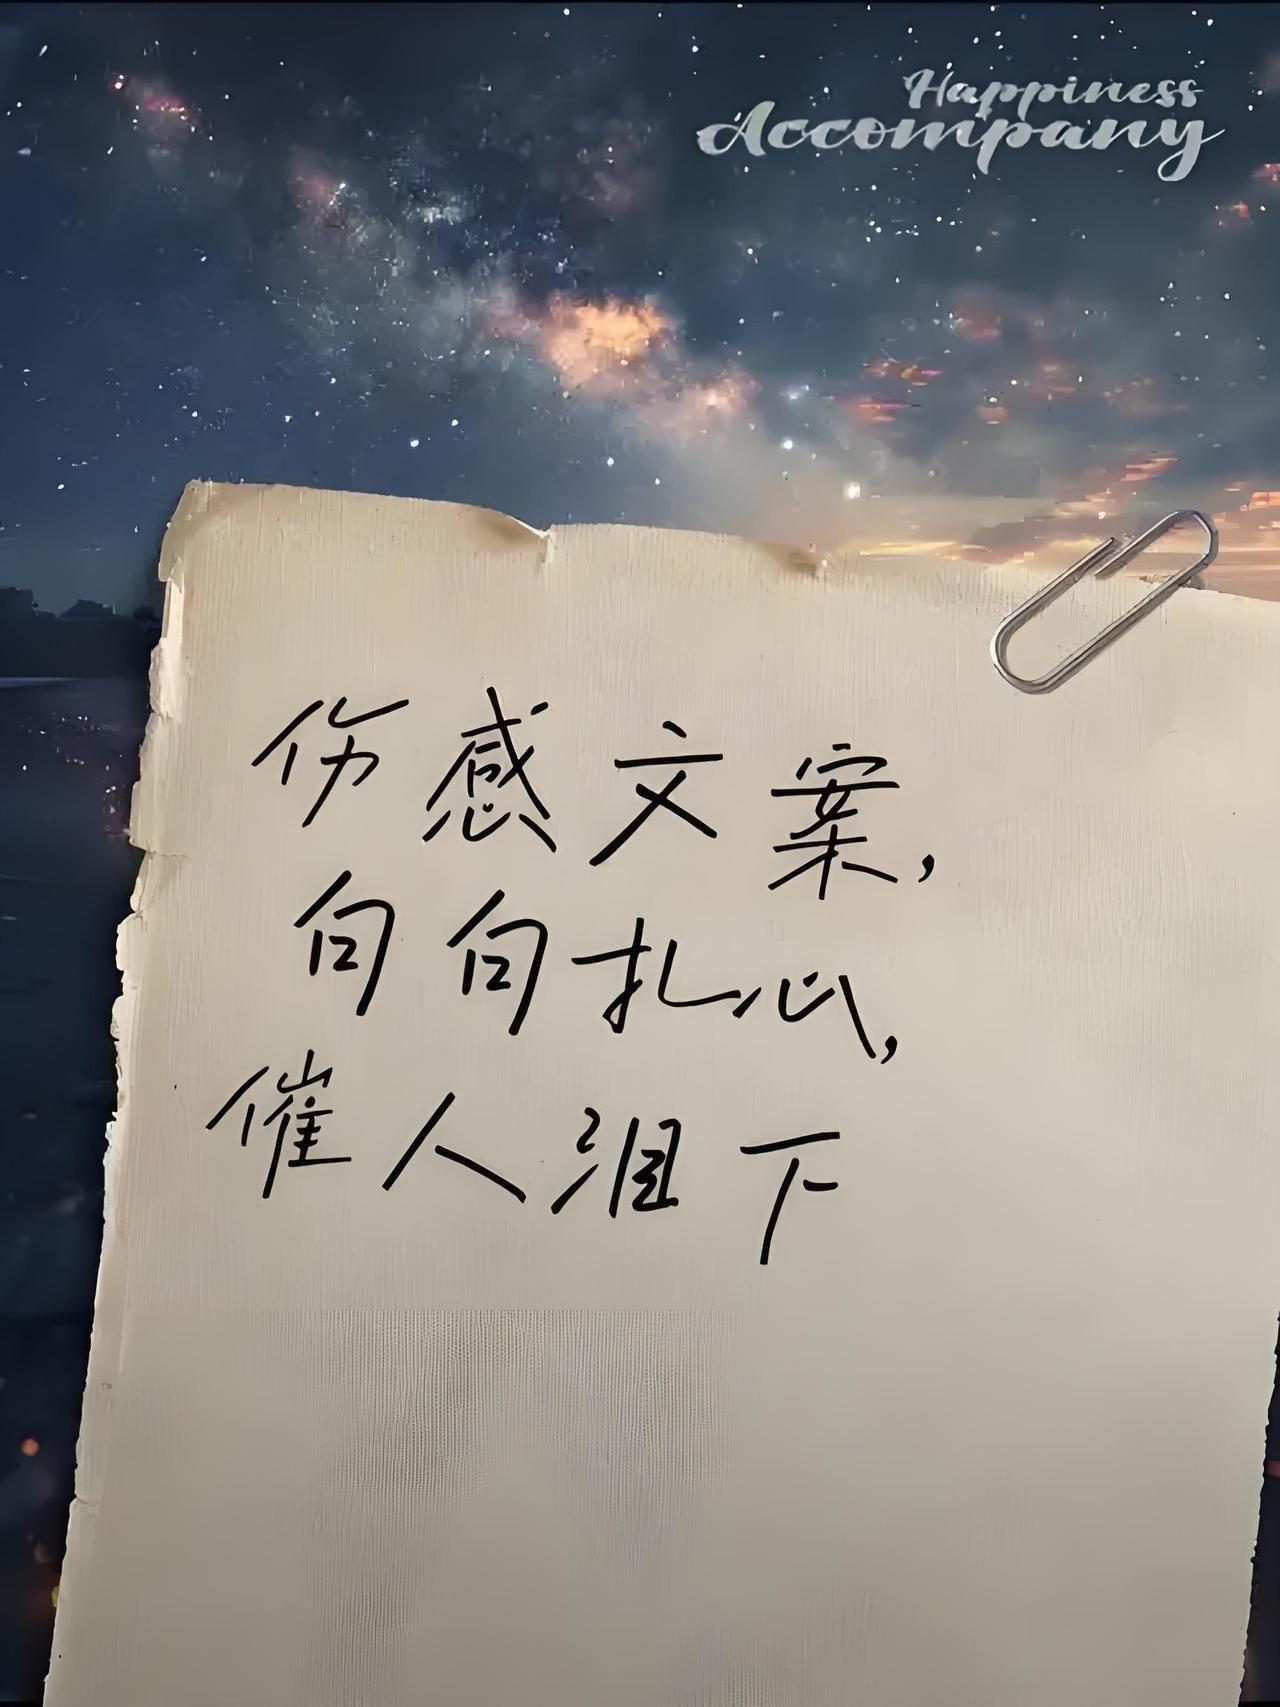 Happiness
Accompany
伤感文案,
句句扎心,
催人泪下